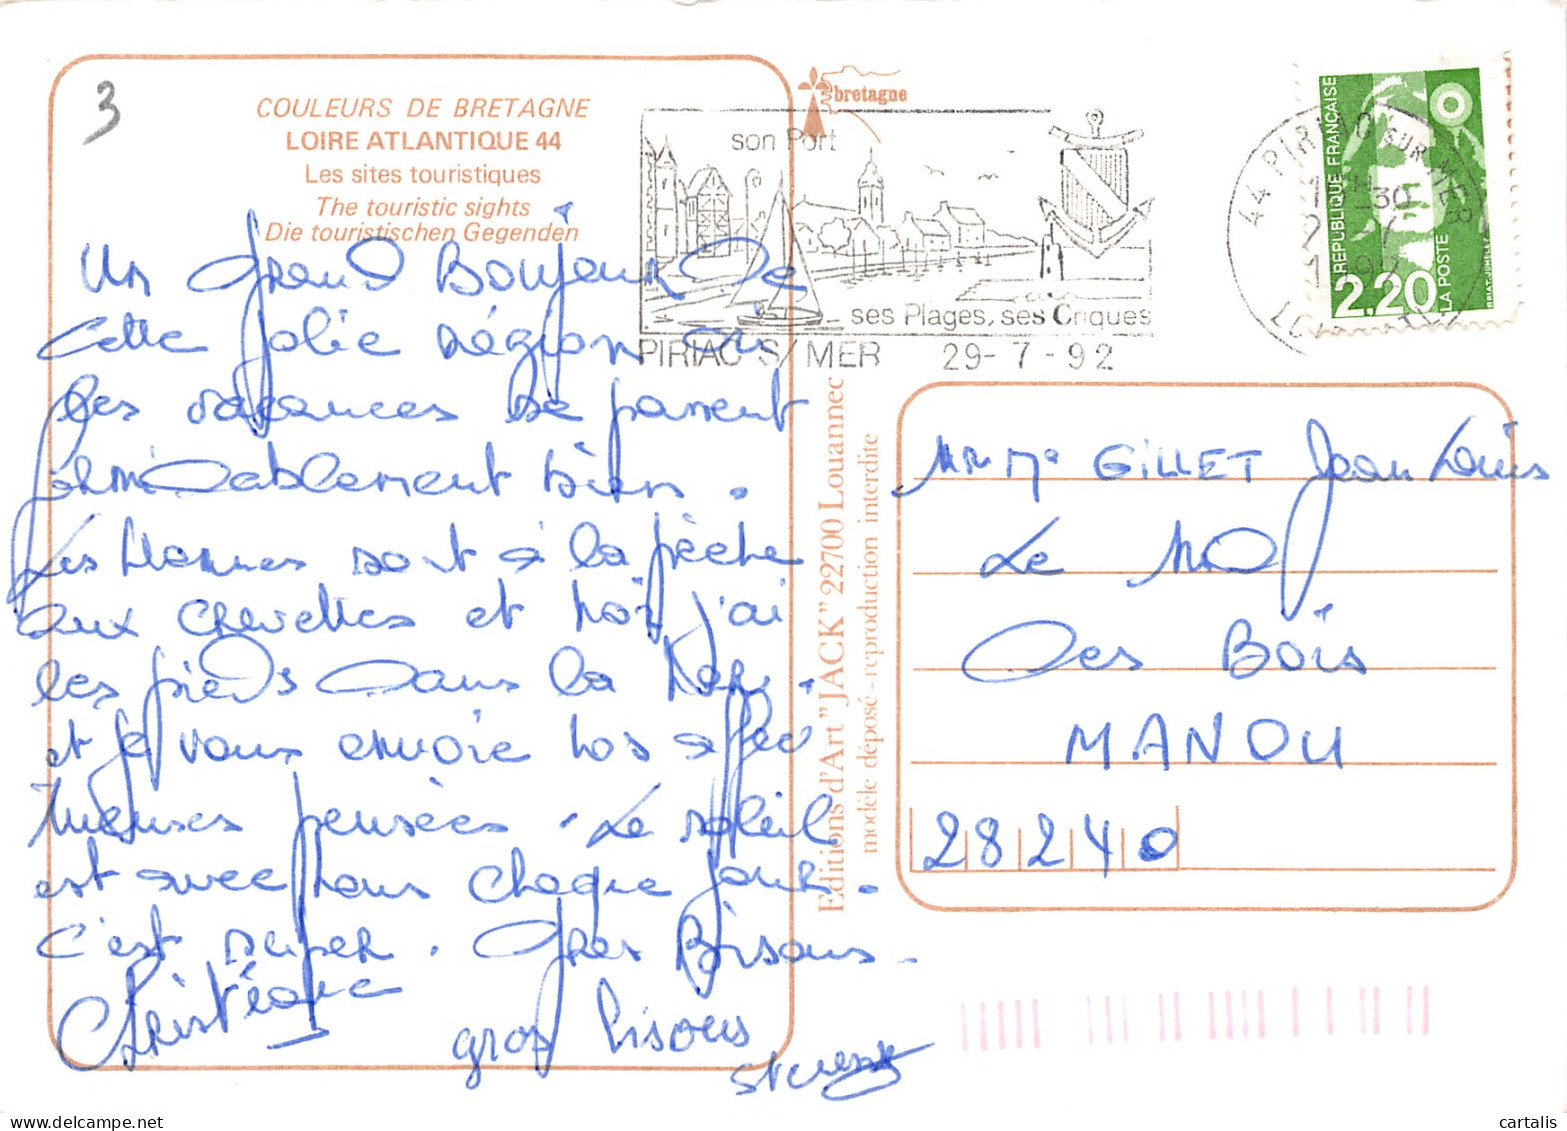 3
COULEURS DE BRETAGNE
LOIRE ATLANTIQUE 44
Les sites touristiques
The touristic sights
Die touristischen Gegenden
Un grand Bonjour De
cette jolie région où
les vacances se passent
formidablement bien.
Les Hommes sont à la pêche
aux crevettes et moi j'ai
les pieds dans la mer.
et je vous envoie nos affec
tueuses pensées. Le soleil
est avec nous chaque jour.
c'est super. Gros Bisous.
Christiane
gros bisous
bretagne
son Port
ses Plages, ses Criques
PIRIAC S/ MER 29-7-92
44 PIRIAC SUR MER
RÉPUBLIQUE FRANÇAISE
2,20
LA POSTE
Editions d'Art "JACK" 22700 Louannec
modèle déposé - reproduction interdite
Mr Me GILLET Jean Louis
Le
Des Bois
MANOU
28240
cartalis
delcampe.net